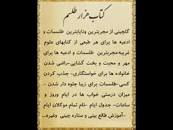 کتاب هزار طلسم
گلچینی از مجربترین ونایابترین طلسمات و
ادعیه ها برای هر طبعی از کتابهای علوم
غریبه-مجربترین طلسمات و ادعیه برای
مهر و محبت و بخت گشایی-راضی شدن
خانواده ها برای خواستگاری- جذب کردن
کسی-طلسمات برای زیبا جلوه دار شدن -
میزان درستی خواب ها در ایام وروز و
ساعات- جدول ایام -نام تمام موکلان ایام
-آموزش طالع بینی و ستاره جینی وغیره-